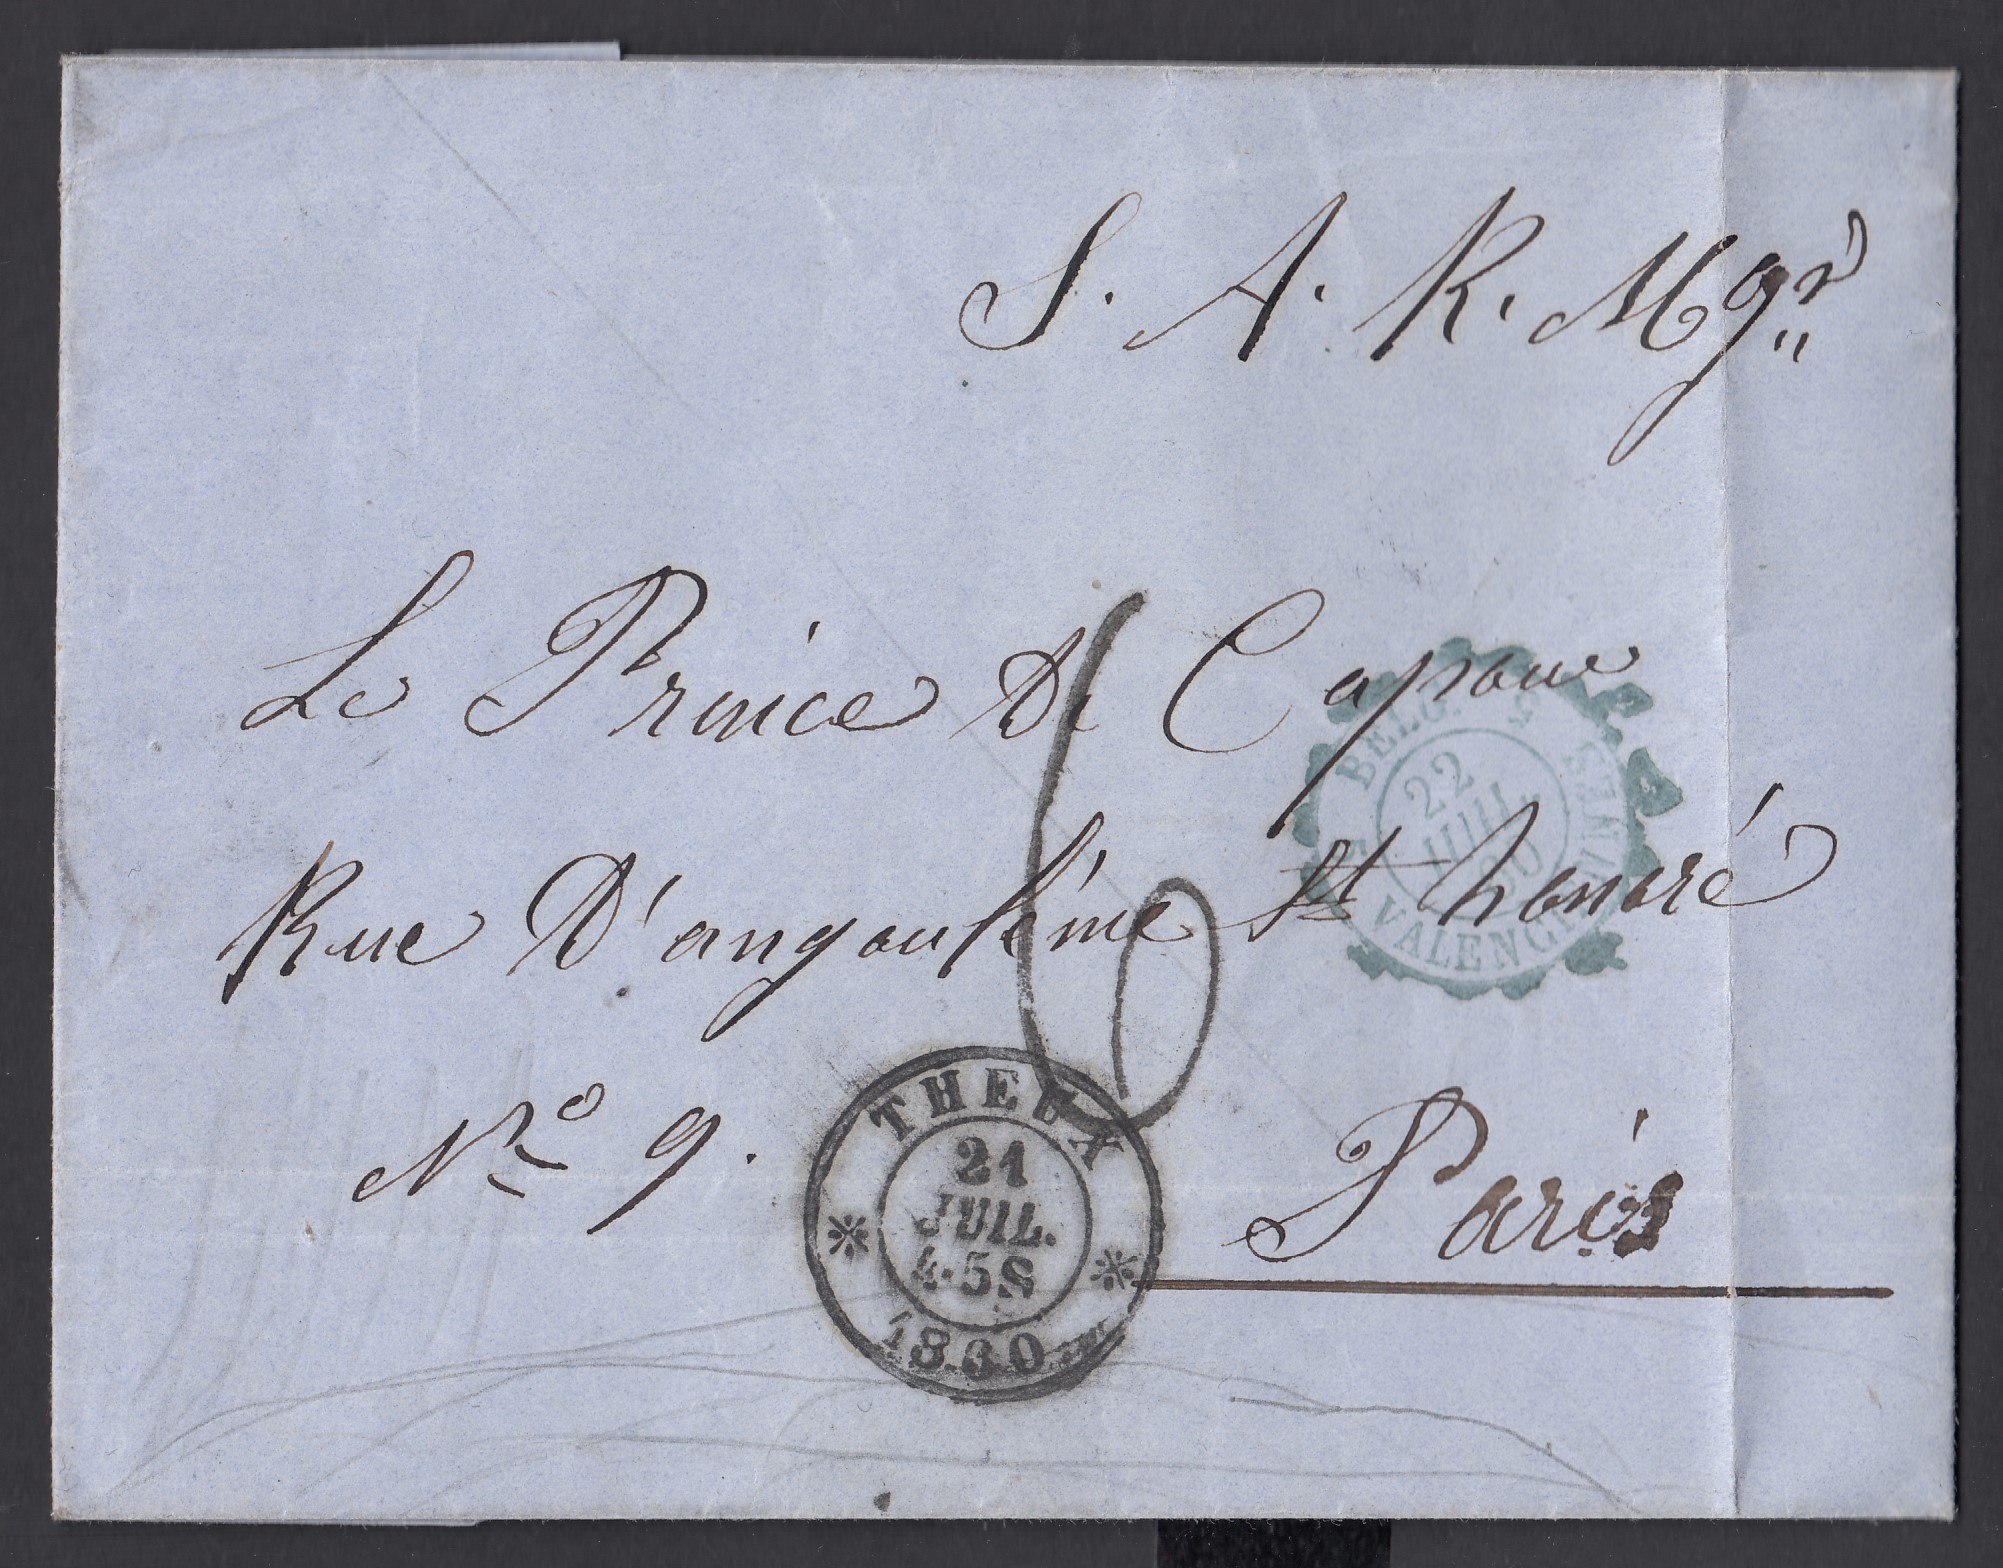 S. A. R. Mgr
Le Prince De Capoue
Rue D'angoulême St honoré
No 9.
Paris
6
THEUX
21
JUIL.
4-5S
1860
BELG.
22
JUIL.
60
VALENCIENNES